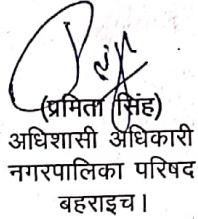 (प्रमिता सिंह)
अधिशासी अधिकारी
नगरपालिका परिषद
बहराइच।